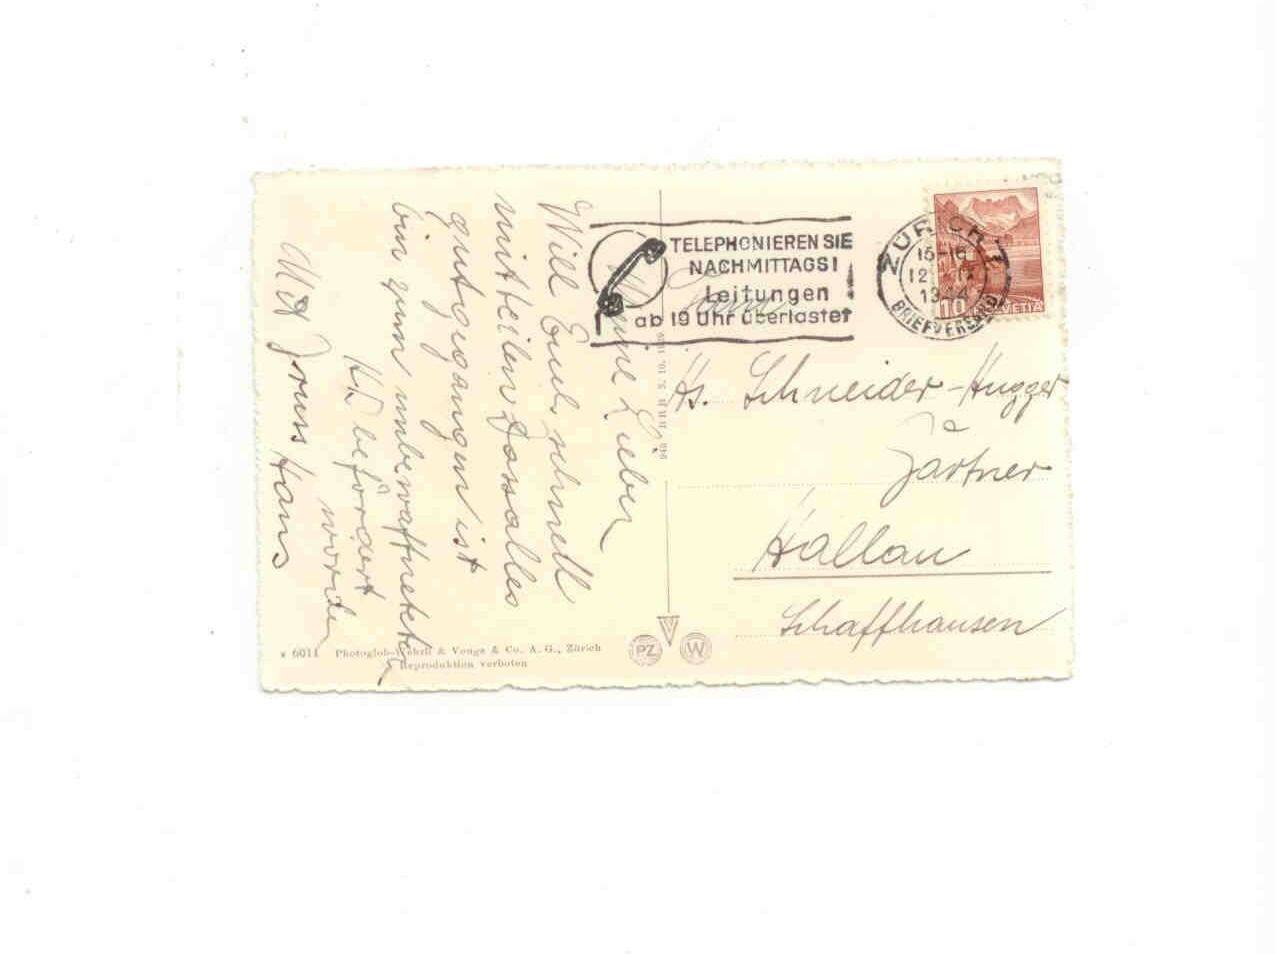 Meine Lieben
Will Euch schnell
mitteilen dass alles
gut gegangen ist
bin zum unbewaffneten
HD befördert
worden
Mit Gruss Hans
TELEPHONIEREN SIE
NACHMITTAGS!
Leitungen
ab 19 Uhr überlastet
ZÜRICH 1
15-16
12
BRIEFVERSAND
10 HELVETIA
Fam.
Hs. Schneider-Hugger
Gärtner
Hallau
Schaffhausen
6011 Photoglob-Wehrli & Vouga & Co. A. G., Zürich
Reproduktion verboten
PZ W